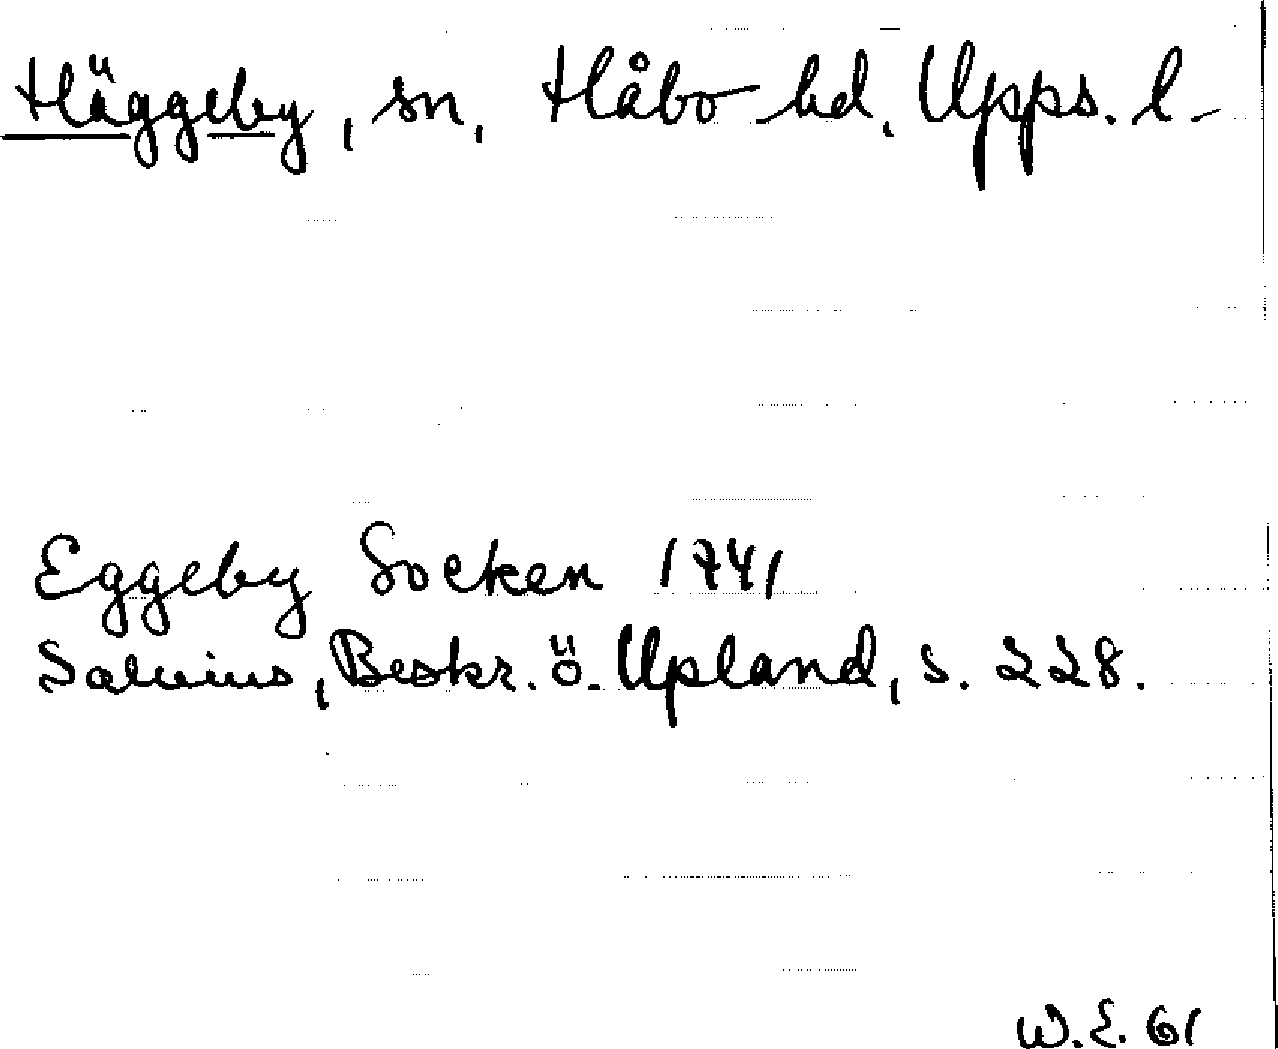 Häggeby, sn, Håbo hd, Upps. l.
Eggeby Socken 1741
Salvius, Beskr. ö. Upland, s. 228.
W.E. 61